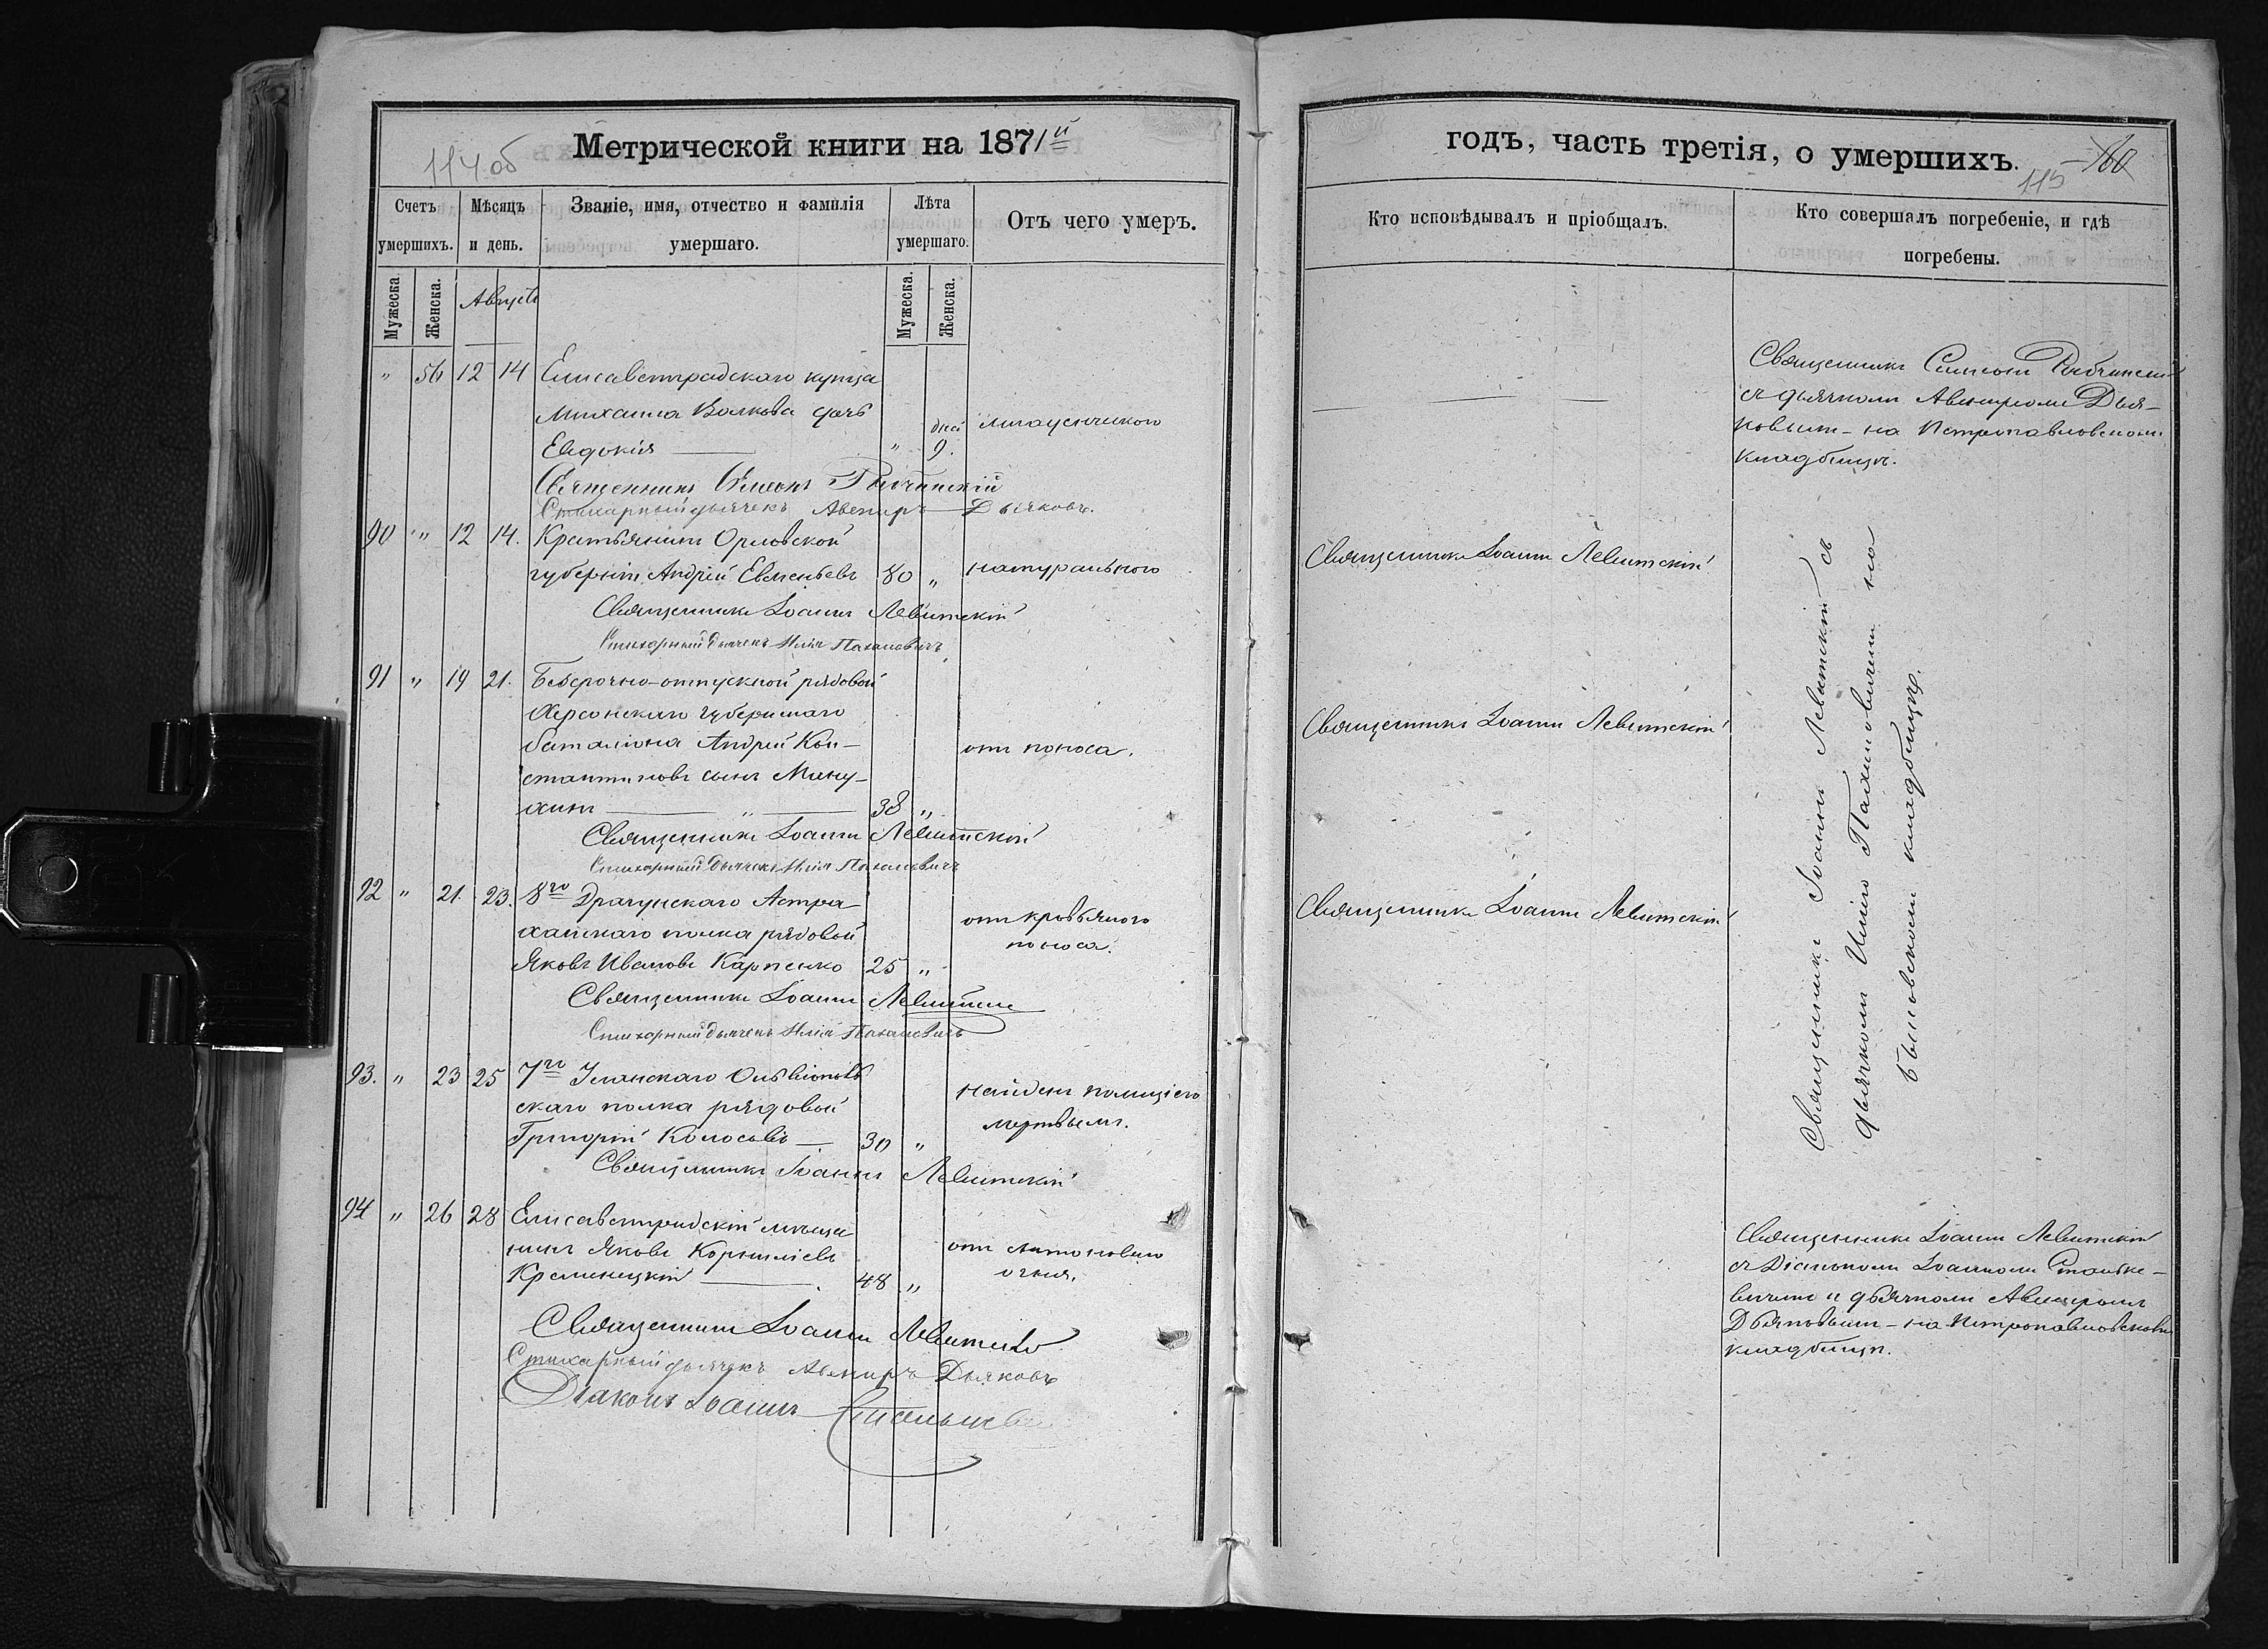 Метрической книги на 1871й
114 об
Счетъ умершихъ.
Мѣсяцъ и день.
Званіе, имя, отчество и фамилія умершаго.
Лѣта умершаго.
Отъ чего умеръ.
Мужеска
Женска.
Августъ
Мужеска.
Женска.
" 56 12 14 Елисаветградскаго купца
Михаила Волкова дочь
Евдокія — " дней 9. младенческого
Священникъ Симеонъ Рыбчинскій
Стихарный дьячекъ Авениръ Дьяковъ.
90 " 12 14. Крестьянинъ Орловской
губерніи Андрей Евменьевъ 80 " натурального
Священникъ Іоаннъ Левитскій
Стихарный дьячекъ Илія Пахаловичъ
91 " 19 21. Безсрочно-отпускной рядовой
Херсонскаго губернскаго
баталіона Андрей Кон-
стантиновъ сынъ Мину-
хинъ — " — 38 " отъ поноса.
Священникъ Іоаннъ Левитскій
Стихарный дьячекъ Илія Пахаловичъ
92 " 21. 23. 8го Драгунскаго Астра-
ханскаго полка рядовой
Яковъ Ивановъ Карпенко 25 " отъ кровяного поноса.
Священникъ Іоаннъ Левитскій
Стихарный дьячекъ Илія Пахаловичъ
93. " 23 25 7го Уланскаго Ольвіополь
скаго полка рядовой
Григорій Колосовъ — 30 " найденъ полиціею мертвымъ.
Священникъ Іоаннъ Левитскій
94 " 26 28 Елисаветградскій мѣща
нинъ Яковъ Корниліевъ
Кременецкій — 48 " отъ антонового огня.
Священникъ Іоаннъ Левитскій
Стихарный дьячекъ Авениръ Дьяковъ
Діаконъ Іоаннъ
годъ, часть третія, о умершихъ.
115
Кто исповѣдывалъ и пріобщалъ.
Кто совершалъ погребеніе, и гдѣ погребены.
Священникъ Симеонъ Рыбчинскій
съ дьячкомъ Авениромъ Дья-
ковымъ - на Петропавловскомъ
кладбищѣ.
Священникъ Іоаннъ Левитскій
Священникъ Іоаннъ Левитскій
Священникъ Іоаннъ Левитскій
Священникъ Іоаннъ Левитскій съ
дьячкомъ Иліею Пахаловичемъ на
Быковскомъ кладбищѣ.
Священникъ Іоаннъ Левитскій
съ Діакономъ Іоанномъ Станке-
вичемъ и дьячкомъ Авениромъ
Дьяковымъ - на Петропавловскомъ
кладбищѣ.